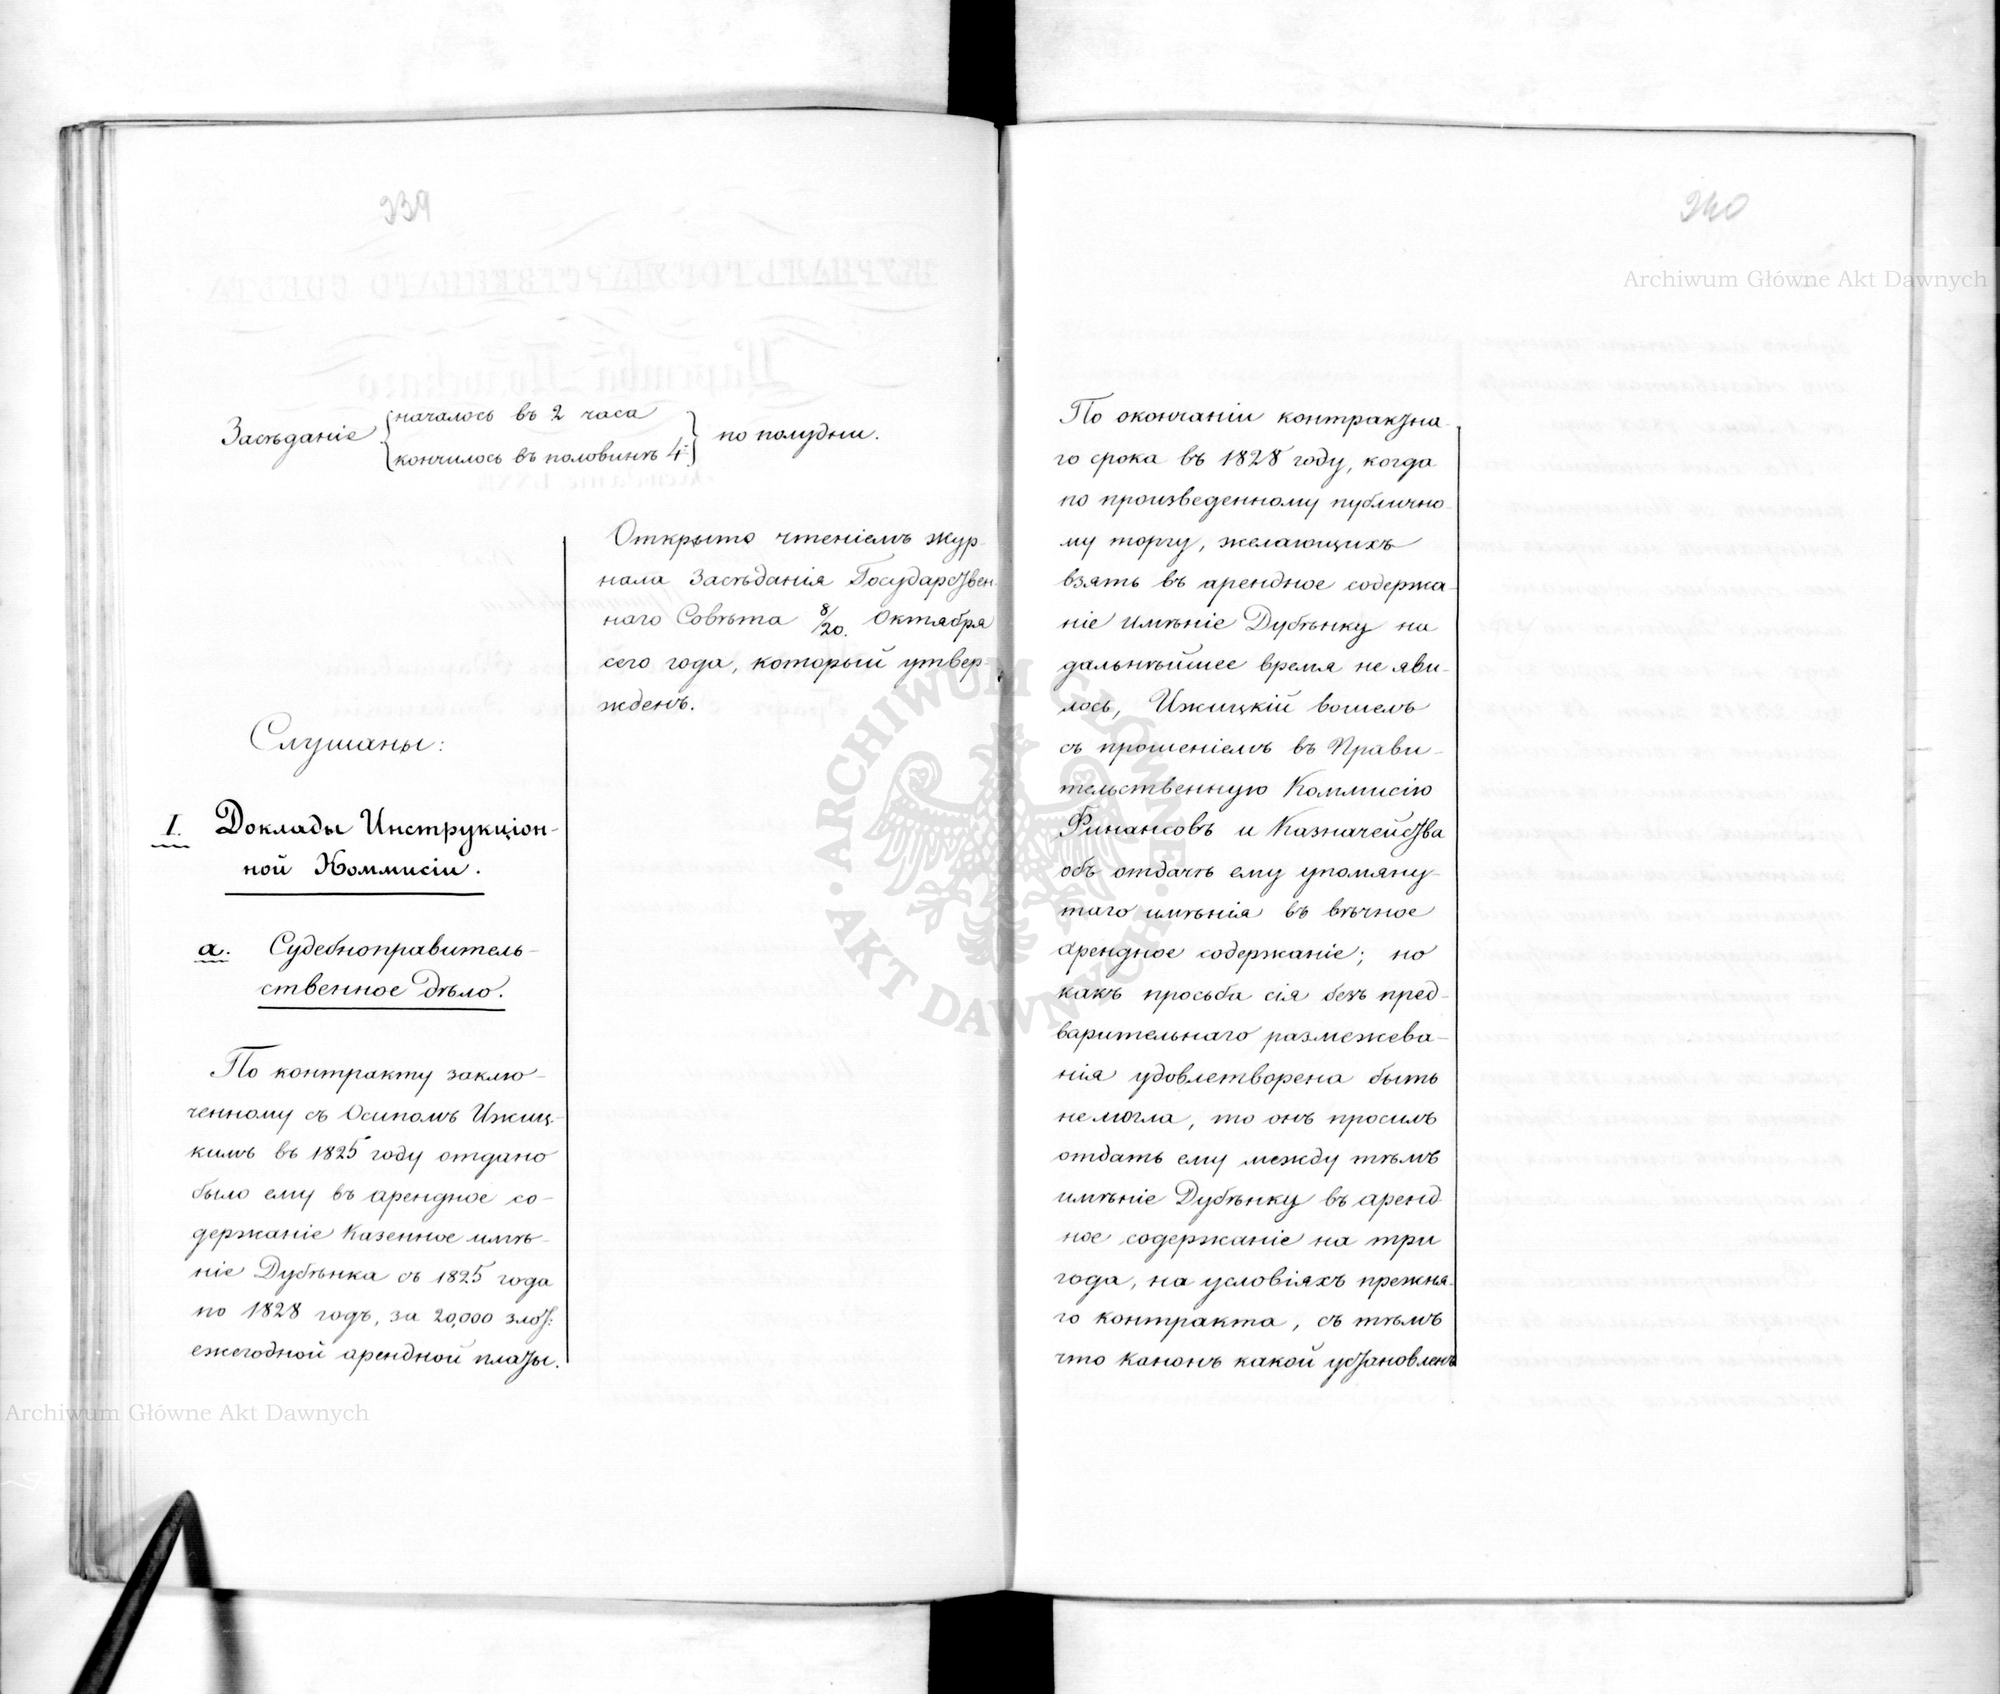 239
Засѣданіе { началось въ 2 часа
кончилось въ половинѣ 4й } по полудни.
Открыто чтеніемъ жур-
нала Засѣданія Государствен-
наго Совѣта 8/20. Октября
сего года, который утвер-
жденъ.
Слушаны:
I. Доклады Инструкціон-
ной Коммисіи.
а. Судебноправитель-
ственное дѣло.
По контракту заклю-
ченному съ Осипомъ Ижиц-
кимъ въ 1825 году отдано
было ему въ арендное со-
держаніе Казенное имѣ-
ніе Дубѣнка съ 1825 года
по 1828 годъ, за 20,000 злот:
ежегодной арендной платы.
240
По окончаніи контрактна-
го срока въ 1828 году, когда
по произведенному публично-
му торгу, желающихъ
взять въ арендное содержа-
ніе имѣніе Дубѣнку на
дальнѣйшее время не яви-
лось, Ижицкій вошелъ
съ прошеніемъ въ Прави-
тельственную Коммисію
Финансовъ и Казначейства
объ отдачѣ ему упомяну-
таго имѣнія въ вѣчное
арендное содержаніе; но
какъ просьба сія безъ пред-
варительнаго размежева-
нія удовлетворена быть
не могла, то онъ просилъ
отдать ему между тѣмъ
имѣніе Дубѣнку въ аренд-
ное содержаніе на три
года, на условіяхъ прежня-
го контракта, съ тѣмъ
что канонъ какой установленъ
Archiwum Główne Akt Dawnych
Archiwum Główne Akt Dawnych
ARCHIWUM GŁÓWNE
AKT DAWNYCH